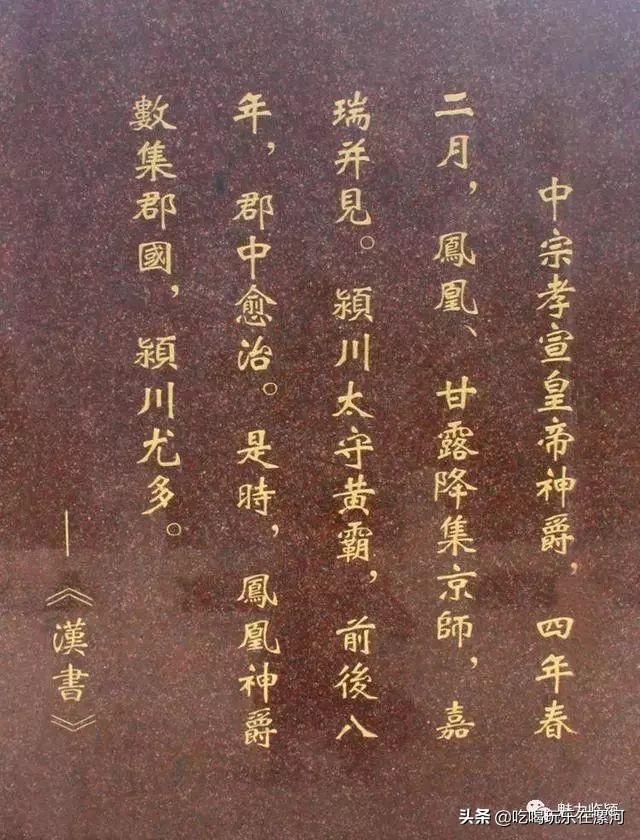 中宗孝宣皇帝神爵，四年春
二月，鳳凰、甘露降集京師，嘉
瑞并見。潁川太守黃霸，前後八
年，郡中愈治。是時，鳳凰神爵
數集郡國，潁川尤多。
——《漢書》
魅力临颍
头条 @吃喝玩乐在漯河